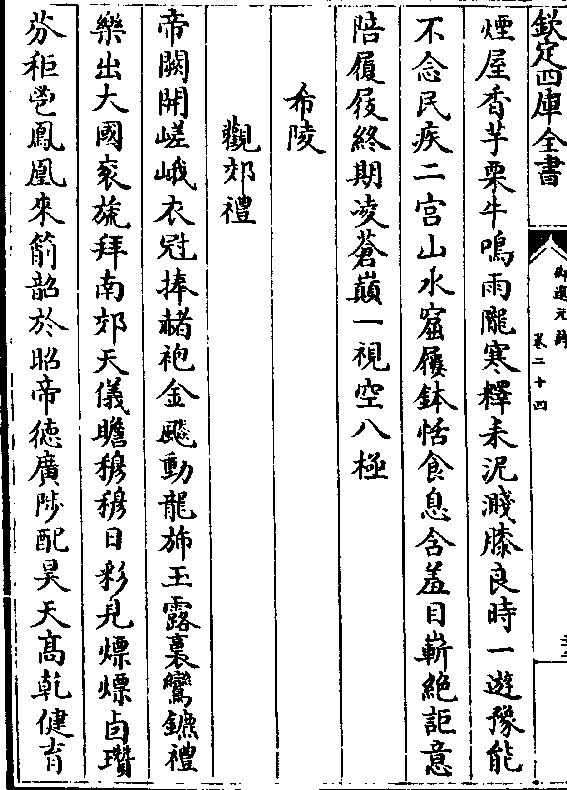 欽定四庫全書
御選元詩
卷二十四
煙屋香芋栗牛鳴雨隴寒釋耒泥濺膝良時一遊豫能
不念民疾二宫山水窟屨鉢恬食息含羞目嶄絶詎意
陪履屐終期凌蒼巔一視空八極
希陵
觀郊禮
帝闕開嵯峨衣冠捧赭袍金飇動龍斾玉露裛鸞鑣禮
樂出大國衮旒拜南郊天儀瞻穆穆日彩見熛熛卣瓚
芬秬鬯鳳凰來箾韶於昭帝德廣陟配昊天髙乾健育